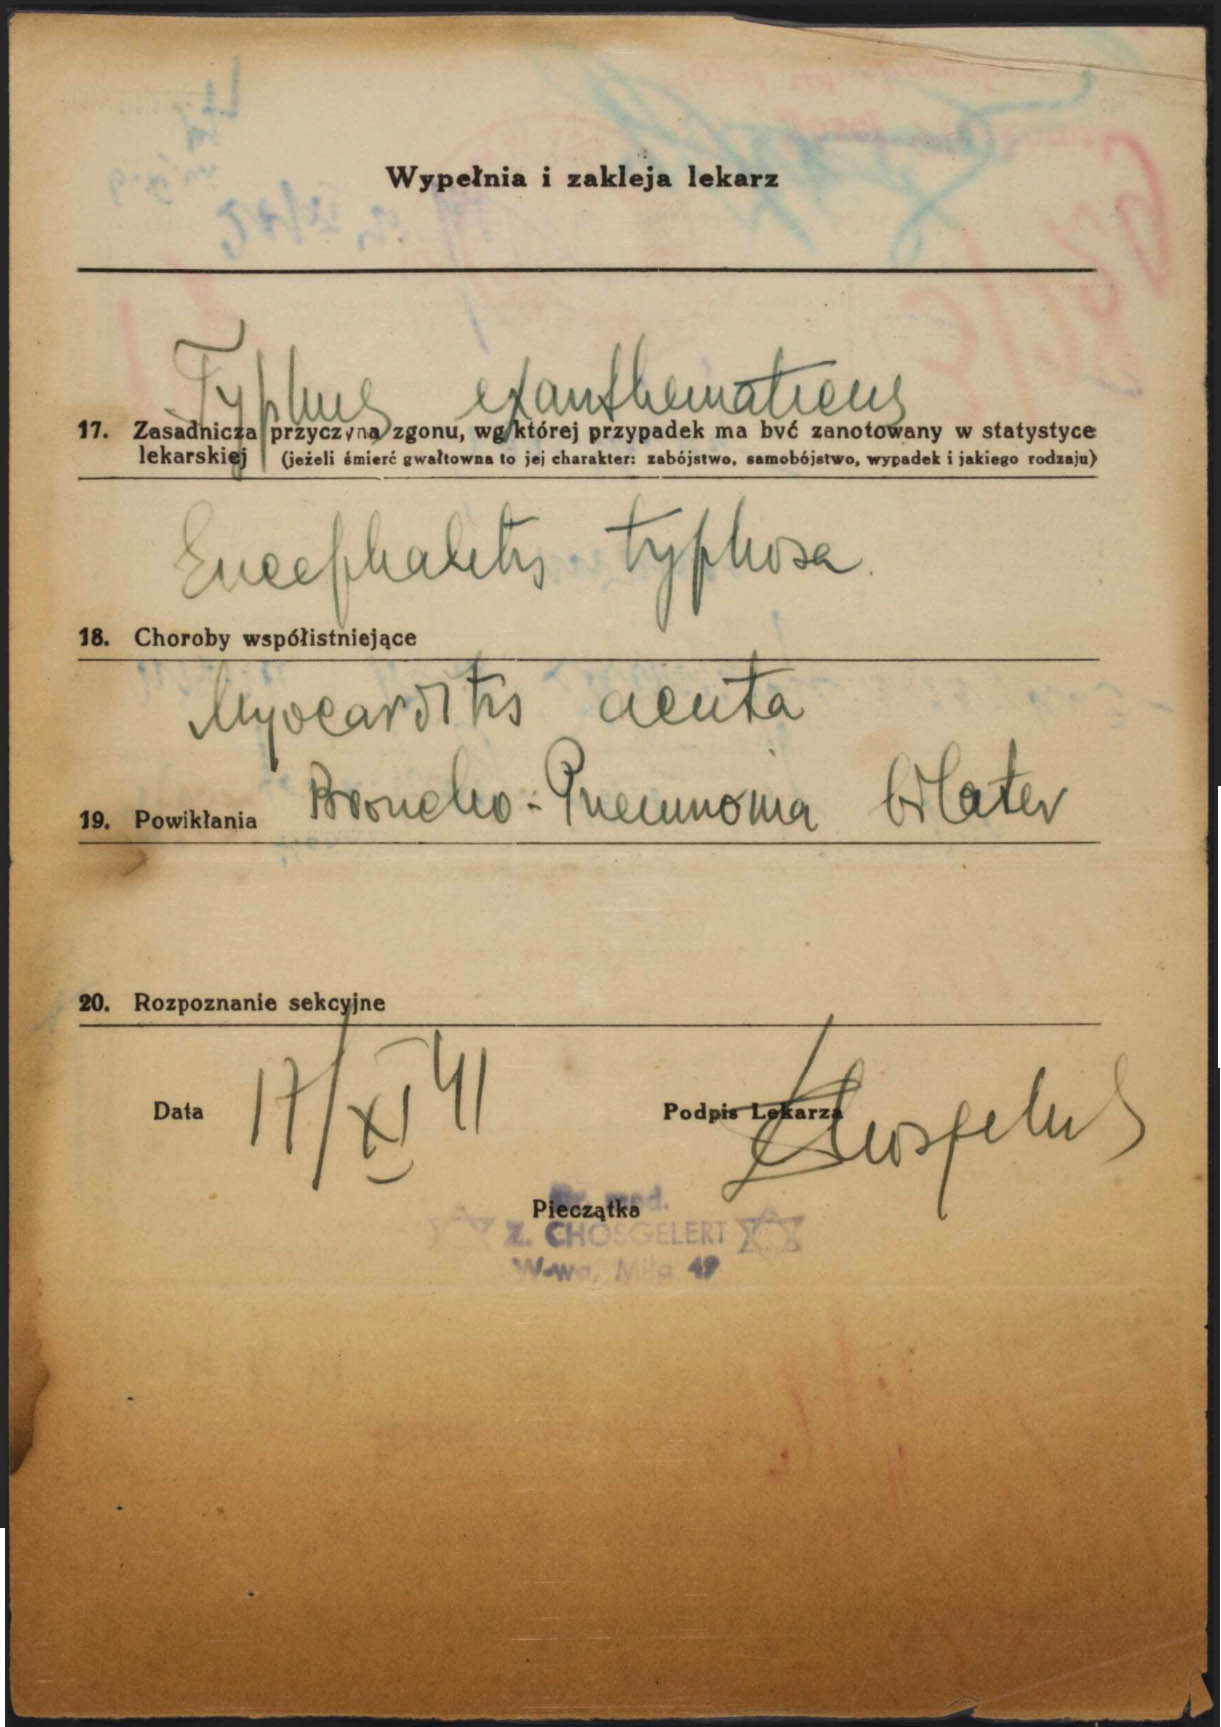 Wypełnia i zakleja lekarz
Typhus exanthematicus
17. Zasadnicza przyczyna zgonu, wg której przypadek ma być zanotowany w statystyce
lekarskiej (jeżeli śmierć gwałtowna to jej charakter: zabójstwo, samobójstwo, wypadek i jakiego rodzaju)
Encephalitis typhosa.
18. Choroby współistniejące
Myocarditis acuta
19. Powikłania Broncho-Pneumonia bilater
20. Rozpoznanie sekcyjne
Data 17/XI 41 Podpis Lekarza
Pieczątka
Dr. med.
Z. CHOSGELERT
W-wa, Miła 49